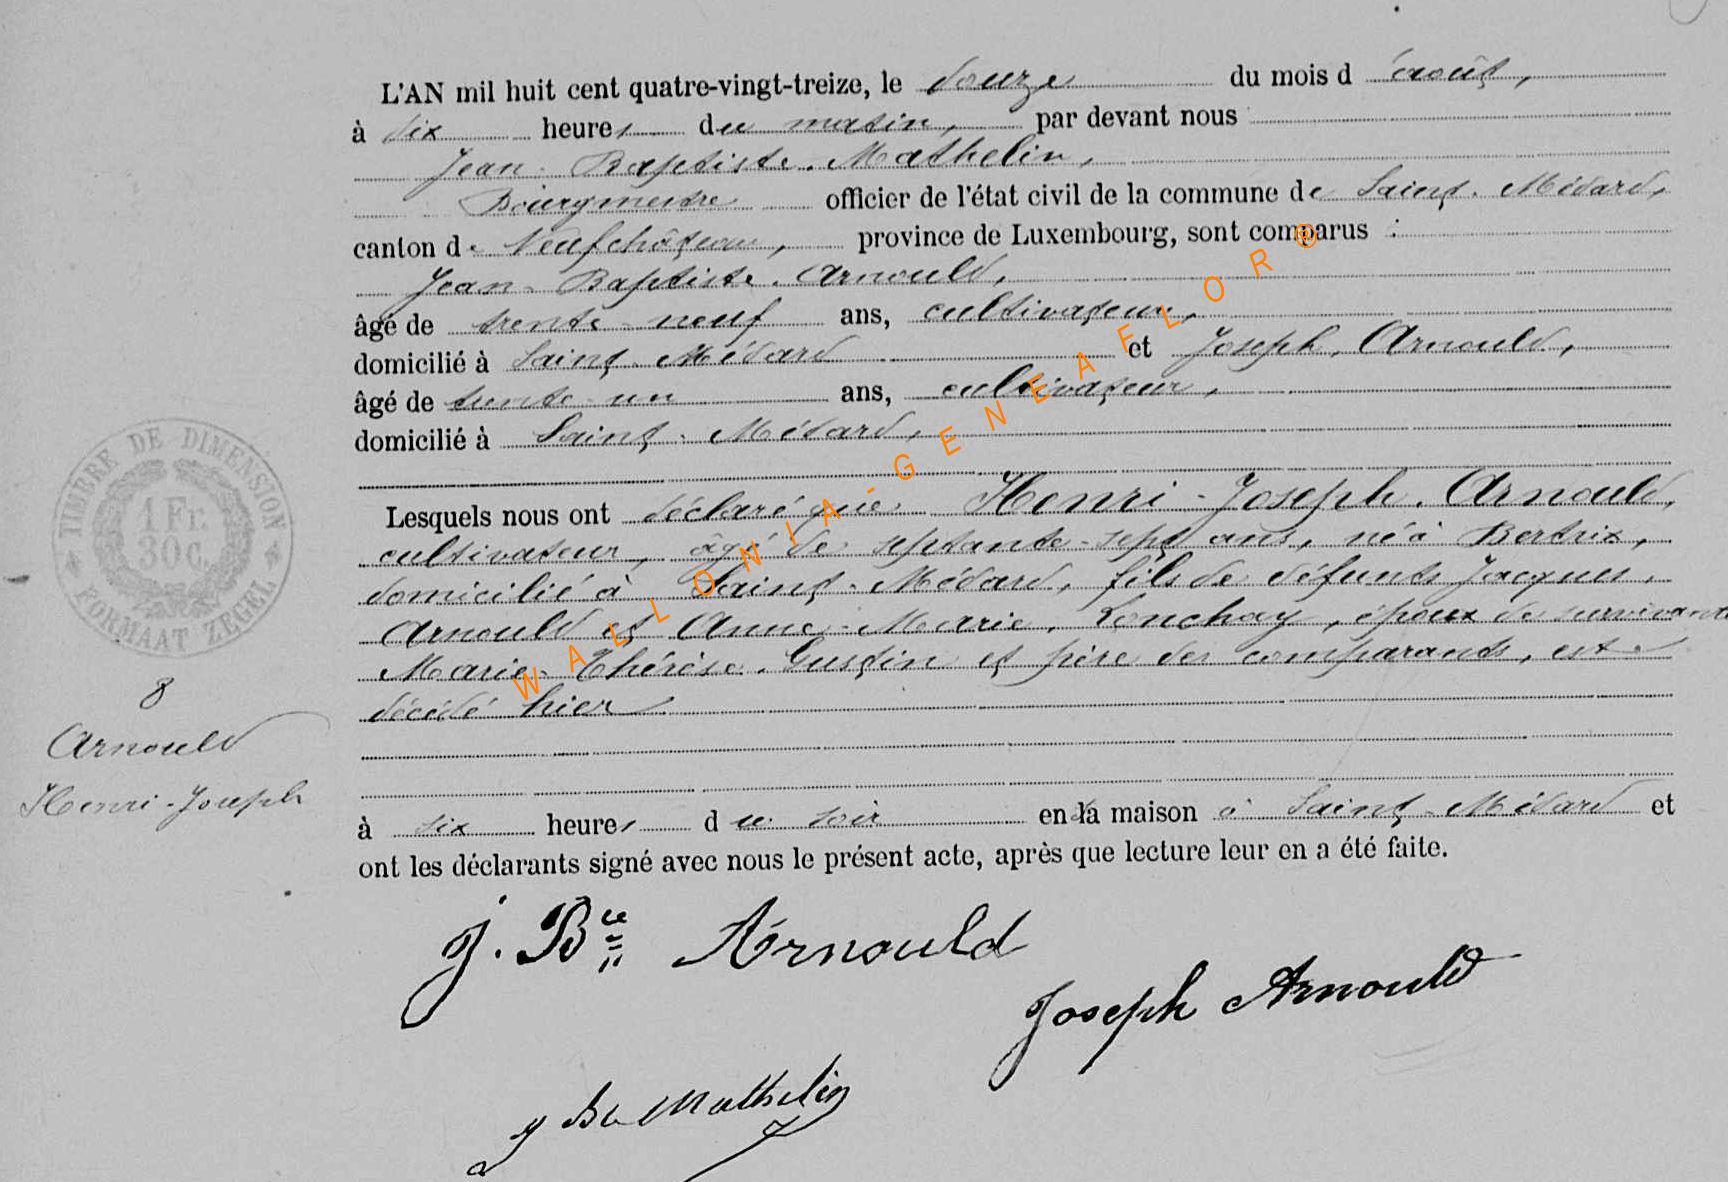 L'AN mil huit cent quatre-vingt-treize, le douze du mois d'août,
à dix heures du matin, par devant nous
Jean-Baptiste Mathelin,
Bourgmestre officier de l'état civil de la commune de Saint-Médard,
canton de Neufchâteau, province de Luxembourg, sont comparus :
Jean-Baptiste Arnould,
âgé de trente-neuf ans, cultivateur,
domicilié à Saint-Médard et Joseph Arnould,
âgé de trente-un ans, cultivateur,
domicilié à Saint-Médard,
Lesquels nous ont déclaré que Henri-Joseph Arnould,
cultivateur, âgé de septante-sept ans, né à Bertrix,
domicilié à Saint-Médard, fils de défunts Jacques
Arnould et Anne-Marie Lonchay, époux de survivante
Marie-Thérèse Gustin et père des comparants, est
décédé hier
à six heures du soir en sa maison à Saint-Médard et
ont les déclarants signé avec nous le présent acte, après que lecture leur en a été faite.
TIMBRE DE DIMENSION
1 Fr.
30 c.
FORMAAT ZEGEL
8
Arnould
Henri-Joseph
J. Bte Arnould
Joseph Arnould
J Bte Mathelin
WALLONIA-GENEAFLOR®